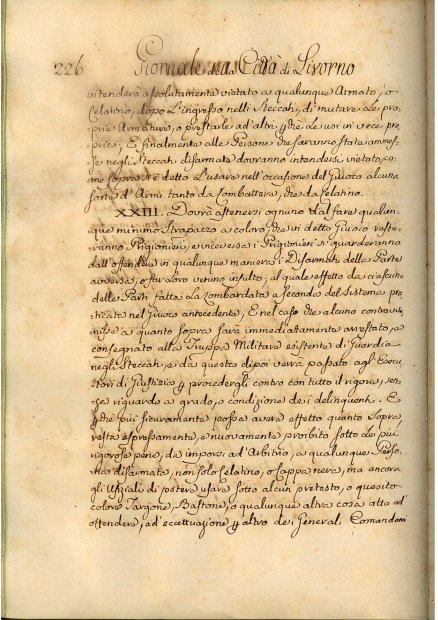 226 Giornale della Città di Livorno
intenderà assolutamente vietato a qualunque Armato, o
Celatino, dopo l'ingresso nelli Steccati, di mutare le pro¬
prie Armature, o prestarle ad'altri, che le usi in vece pro¬
pria; E finalmente alle Persone che saranno state ammes¬
se negli Steccati disarmate dovranno intendersi vietato, co¬
me sopra s'è detto L'usare nell'occasione del Giuoco alcuna
sorte d'Armi tanto da Combattere, che da Celatino.
XXIII. Dovrà astenersi ognuno dal fare qualun¬
que minimo strapazzo a coloro, che in detto Giuoco reste¬
ranno Prigionieri, e viceversa i Prigionieri si guarderanno
dall'offendere in qualunque maniera i Disarmati della Parte
avversa, o far loro veruno insulto, al quale effetto da ciascuna
delle Parti fatta la Lombardata a seconda del Sistema pra¬
ticato nel Giuoco antecedente, E nel caso che alcuno contrav¬
nisse a quanto sopra sarà immediatamente arrestato, e
consegnato alla Truppa Militare esistente di Guardia
negli Steccati, e da questa dipoi verrà passato agl'Esecu¬
tori di Giustizia per procedergli contro con tutto il rigore, sen¬
za riguardo a grado, o condizione dei delinquenti. E
perchè più sicuramente possa avere effetto quanto sopra
resta espressamente, e nuovamente proibito sotto le più
rigorose pene, da imporsi ad'Arbitrio, a qualunque Perso¬
na disarmata, non solo Celatino, o Cappa nera, ma ancora
gli Ufiziali di potere usare sotto alcun pretesto, o quesito
colore Targone, Bastone, o qualunque altra cosa atta ad'
offendere, ad'eccettuazione per altro dei Generali, Comandan¬